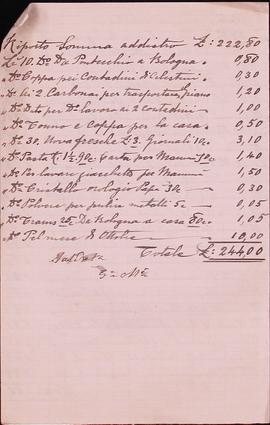 Riporto Somma addietro £: 222,80
£: 10. Do Da Pistecchio a Bologna " 0,80
" Do Coppa pei Contadini di Celestini " 0,30
" Do ai 2 Carbonai per trasportare, piano " 1,20
" Do Dato per Do lavoro a 2 Contadini " 1,00
" Do Tonno e Coppa per la casa " 0,50
" Do 30. Nova fresche £ 3. Giornali 10c " 3,10
" Do Pasta K: 1½ 90c Carta per Mammà 50c " 1,40
" Do Per lavare giacchetto per Mammà " 1,50
" Do Cristallo orologio Papà 30c " 0,30
" Do Polvere per pulire metalli 5c " 0,05
" Do Trams 25c Da Bologna a casa 80c " 1,05
" Do Pel mese di Ottobre 10,00
Totale £: 244,00